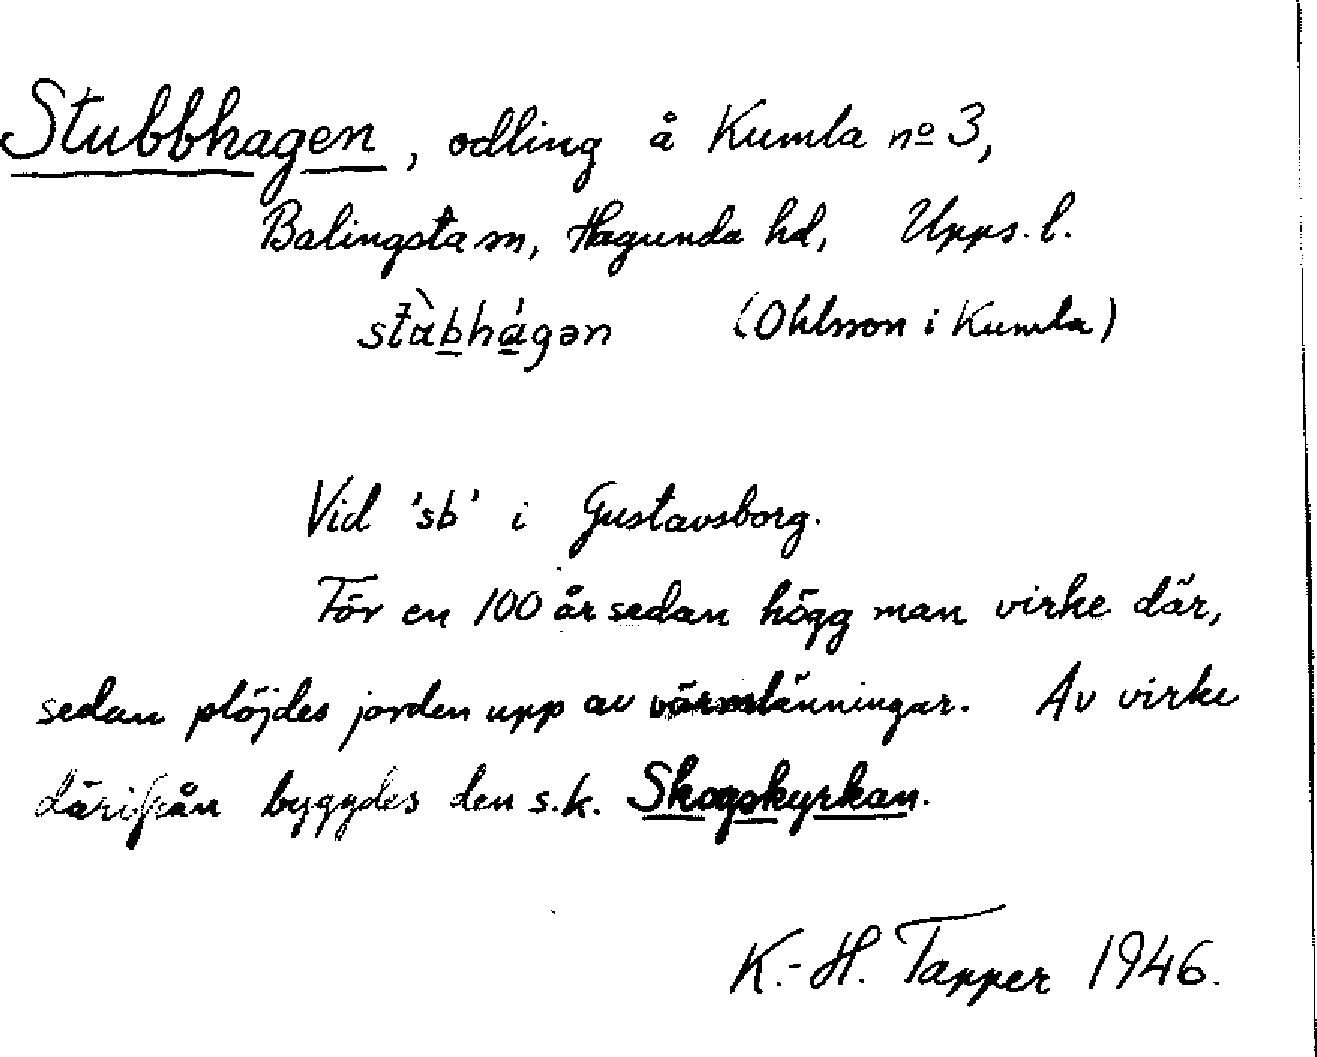 Stubbhagen, odling å Kumla nº 3,
Balingsta sn, Hagunda hd, Upps. l.
stàbhágən (Ohlsson i Kumla)
Vid 'sb' i Gustavsborg.
För en 100 år sedan högg man virke där,
sedan plöjdes jorden upp av värmlänningar. Av virke
därifrån byggdes den s.k. Skogskyrkan.
K.-H. Tapper 1946.